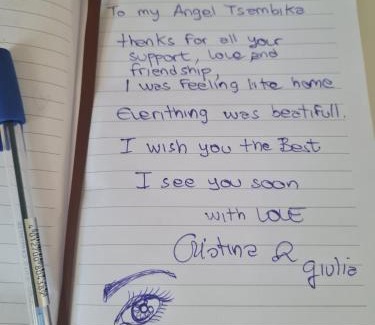 To my Angel Tsambika
thanks for all your
support, love and
friendship,
I was feeling lite home
Everithing was beatifull.
I wish you the Best
I see you soon
with LOVE
Cristina &
giulia